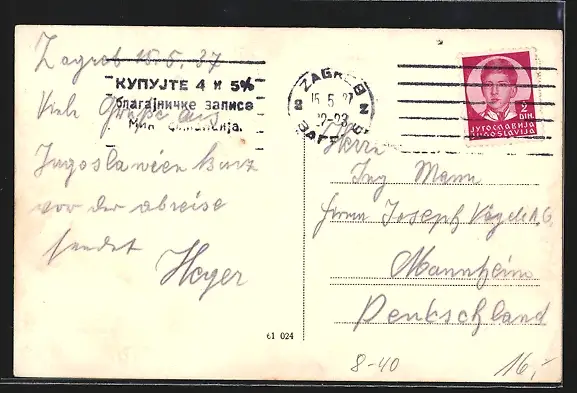 Zagreb 15.5.37
КУПУЈТЕ 4 и 5%
благајничке записе
Мин. финансија.
Viele Grüße aus
Jugoslawien kurz
vor der abreise
sendet
Heger
ZAGREB
15 5 37
22-23
ЗАГРЕБ
2
DIN.
ЈУГОСЛАВИЈА
JUGOSLAVIJA
Herrn
Ing Mann
Firma Joseph Vögele A.G.
Mannheim
Deutschland
61 024
8-40
16,-